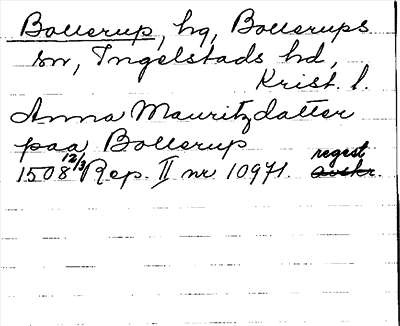 Bollerup, hg, Bollerups
sn, Ingelstads hd,
Krist. l.
Anna Mauritzdatter
paa Bollerup
1508 12/3 Rep. II nr 10971. regest avskr.